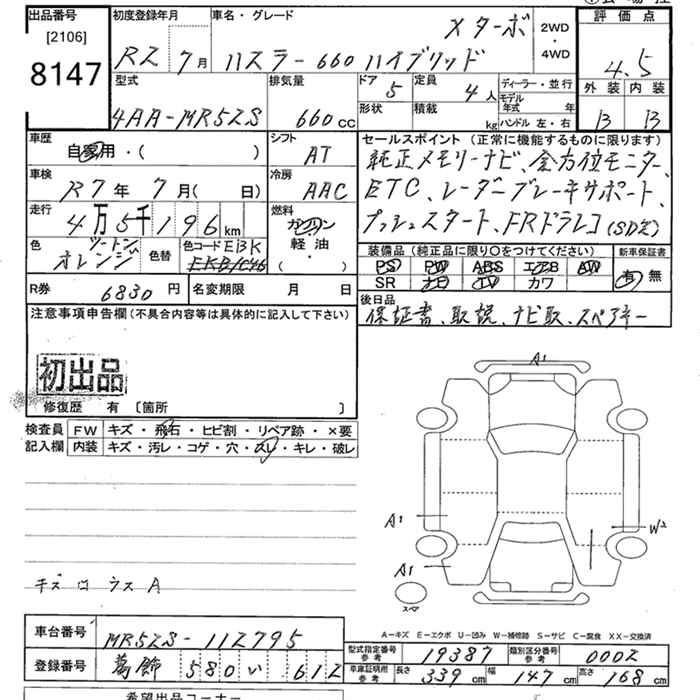 出品番号
[2106]
8147
初度登録年月
R2 7月
車名・グレード
Xターボ
ハスラー660ハイブリッド
2WD
・
4WD
評価点
4.5
外装 内装
B B
型式
4AA-MR52S
排気量
660cc
ドア 5
形状
定員 4人
積載 kg
ディーラー・並行
モデル年式 年
ハンドル 左・右
車歴
自家用・( )
シフト
AT
車検
R7年7月( 日)
冷房
AAC
走行
4万5千196km
燃料
ガソリン
軽油
・
( )
色
ツートン
オレンジ
色替
色コード EBK
R券 6830円
名変期限 月 日
セールスポイント(正常に機能するものに限ります)
純正メモリーナビ、全方位モニター、
ETC、レーダーブレーキサポート、
プッシュスタート、FRドラレコ(SD欠)
装備品(純正品に限り〇をつけてください)
新車保証書
PS PW ABS エアB AW
SR ナビ TV カワ
有 無
後日品
保証書、取説、ナビ取、スペアキー
注意事項申告欄(不具合内容等は具体的に記入して下さい)
初出品
修復歴 有 〔箇所 〕
検査員記入欄
FW キズ・飛石・ヒビ割・リペア跡・×要
内装 キズ・汚レ・コゲ・穴・スレ・キレ・破レ
A1
A1
W2
A1
スペア
キズ ロ ラス A
A-キズ E-エクボ U-凹み W-補修跡 S-サビ C-腐食 XX-交換済
車台番号 MR52S-112795
登録番号 葛飾 580 い 612
型式指定番号 参考 19387
類別区分番号 参考 0002
車庫証明用 参考 長さ 339cm 幅 147cm 高さ 168cm
希望出品コーナー